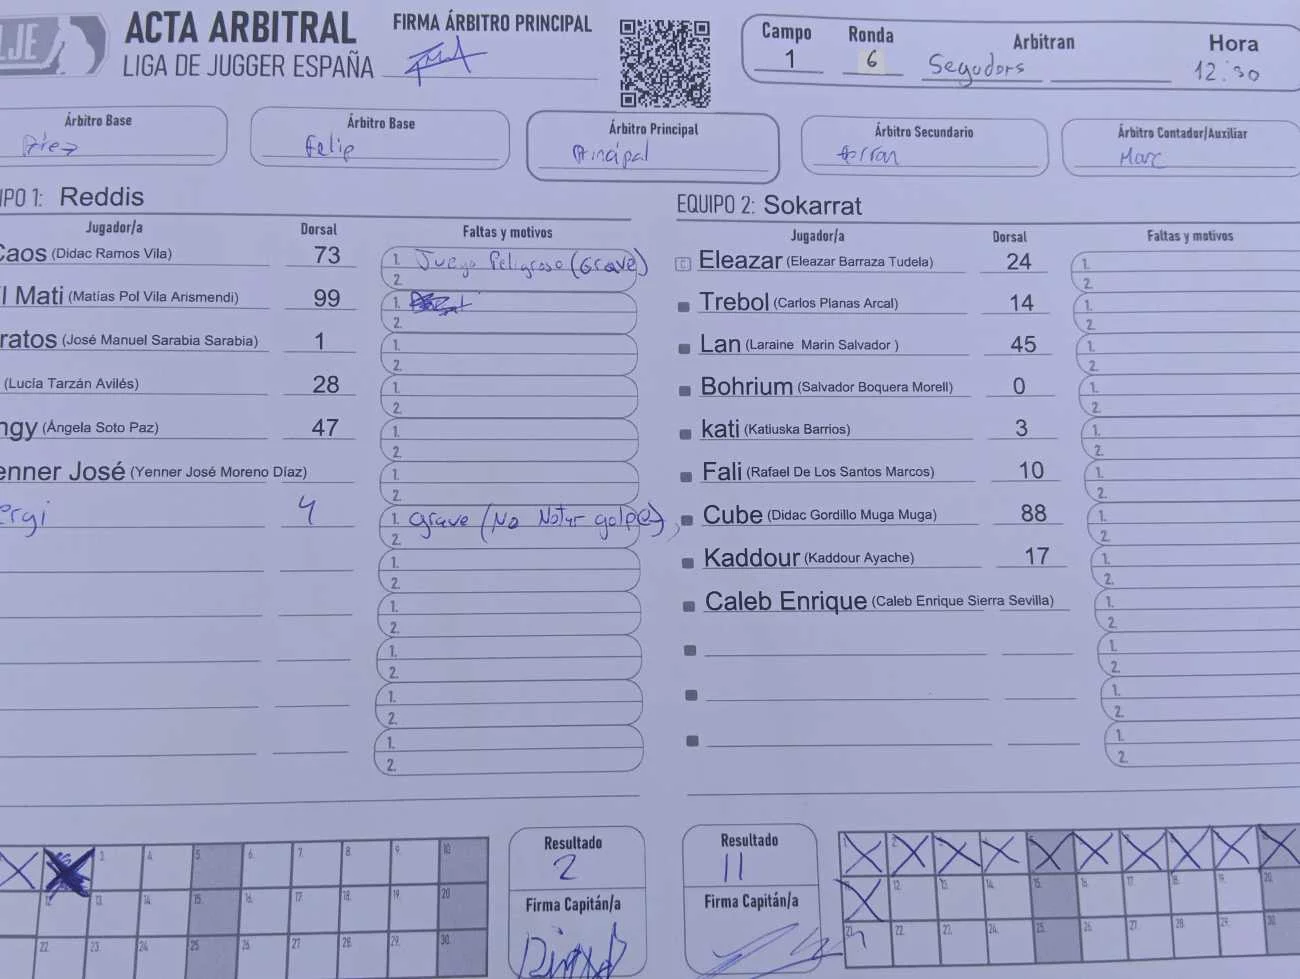 LJE
ACTA ARBITRAL
LIGA DE JUGGER ESPAÑA
FIRMA ÁRBITRO PRINCIPAL
Campo Ronda Arbitran Hora
1 6 Segadors 12:30
Árbitro Base
Árbitro Base
Felip
Árbitro Principal
Principal
Árbitro Secundario
Ferran
Árbitro Contador/Auxiliar
Marc
IPO 1: Reddis
Jugador/a Dorsal Faltas y motivos
Caos (Didac Ramos Vila) 73 1. Juego Peligroso (Grave)
2.
l Mati (Matías Pol Vila Arismendi) 99 1.
2.
ratos (José Manuel Sarabia Sarabia) 1 1.
2.
(Lucía Tarzán Avilés) 28 1.
2.
ngy (Ángela Soto Paz) 47 1.
2.
enner José (Yenner José Moreno Díaz) 1.
2.
ergi 4 1. grave (No Notar golpe)
2.
1.
2.
1.
2.
1.
2.
1.
2.
1.
2.
EQUIPO 2: Sokarrat
Jugador/a Dorsal Faltas y motivos
C Eleazar (Eleazar Barraza Tudela) 24 1.
2.
Trebol (Carlos Planas Arcal) 14 1.
2.
Lan (Laraine Marin Salvador ) 45 1.
2.
Bohrium (Salvador Boquera Morell) 0 1.
2.
kati (Katiuska Barrios) 3 1.
2.
Fali (Rafael De Los Santos Marcos) 10 1.
2.
Cube (Didac Gordillo Muga Muga) 88 1.
2.
Kaddour (Kaddour Ayache) 17 1.
2.
Caleb Enrique (Caleb Enrique Sierra Sevilla) 1.
2.
1.
2.
1.
2.
1.
2.
3. 4. 5. 6. 7. 8. 9. 10.
12. 13. 14. 15. 16. 17. 18. 19. 20
22. 23. 24. 25 26. 27 28. 29. 30.
Resultado
2
Firma Capitán/a
Resultado
11
Firma Capitán/a
12. 13. 14. 15. 16. 17. 18. 19. 20.
21. 22. 23. 24. 25. 26. 27. 28. 29. 30.